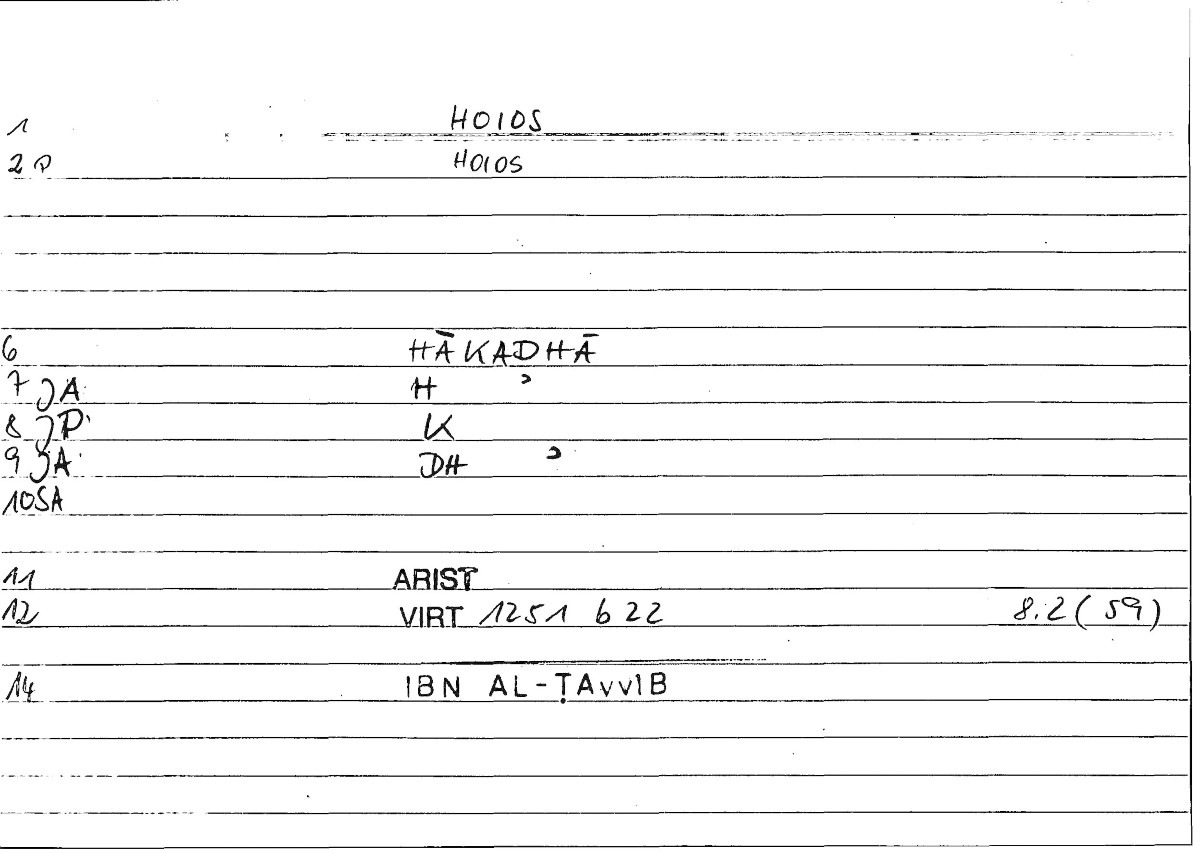 1 HOIOS
2 P HOIOS
6 HĀKADHĀ
7 JA H ʾ
8 JP K
9 JA DH ʾ
10 SA
11 ARIST
12 VIRT 1251 b 22 8.2 (59)
14 IBN AL-ṬAYYIB